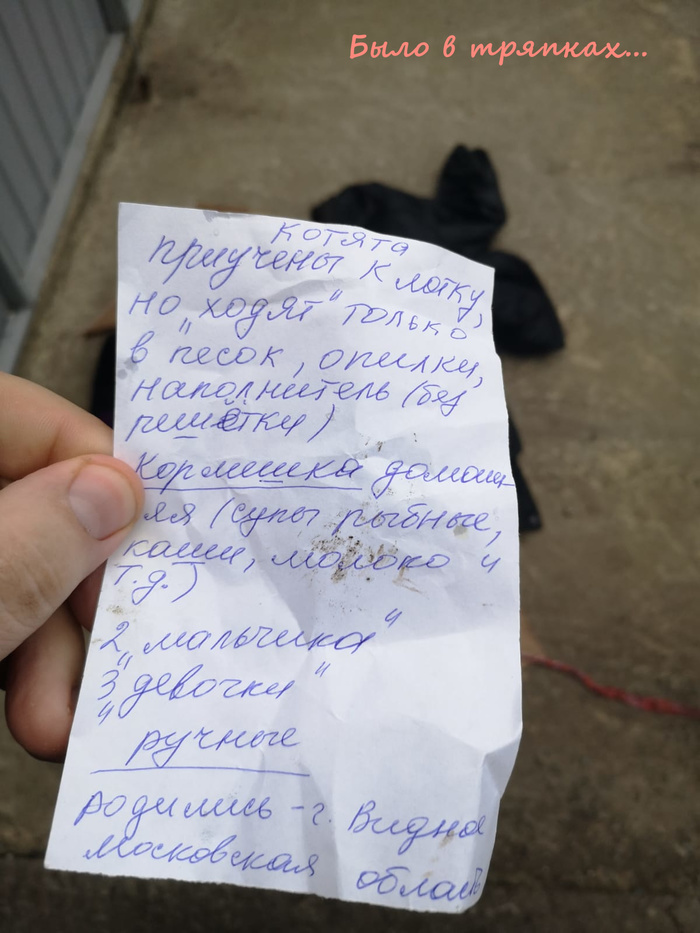 Было в тряпках...
котята
приучены к лотку,
но „ходят" только
в песок, опилки,
наполнитель (без
решётки)
Кормёшка домаш-
няя (супы рыбные,
каши, молоко и
т.д.)
2 „мальчика"
3 „девочки"
ручные
родились - г. Видное
Московская область